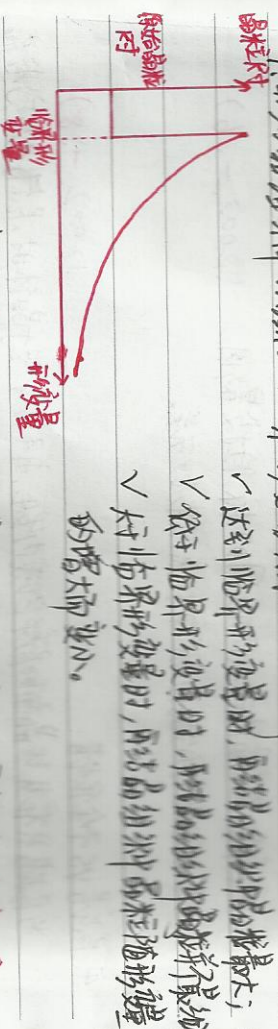 晶粒尺寸
原始晶粒
尺寸
临界形
变量
形变量
✓ 达到临界形变量时，再结晶组织中晶粒最大；
✓ 低于临界形变量时，再结晶组织中晶粒
✓ 大于临界形变量时，再结晶组织中晶粒随形变量
的增大而变小。